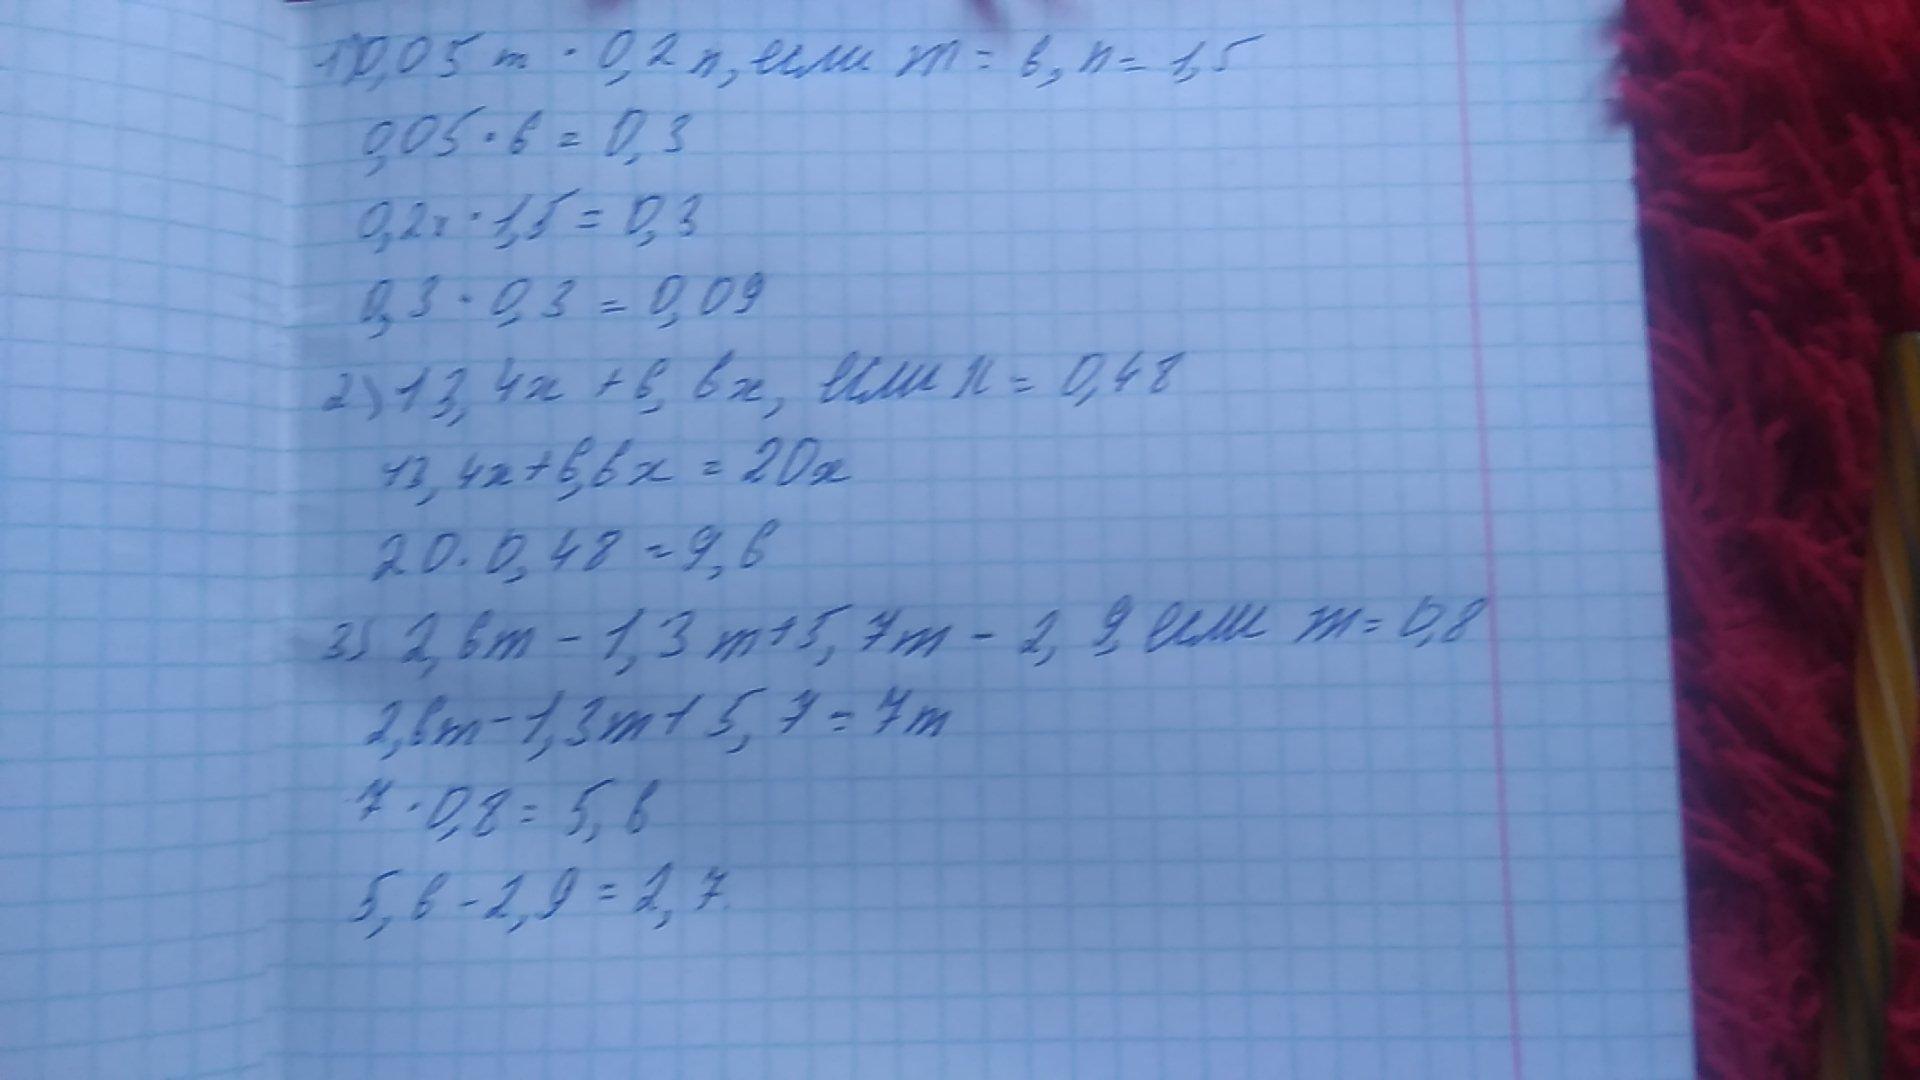 1) 0,05 m · 0,2 n, если m = 6, n = 1,5
0,05 · 6 = 0,3
0,2 · 1,5 = 0,3
0,3 · 0,3 = 0,09
2) 13,4x + 6,6x, если x = 0,48
13,4x + 6,6x = 20x
20 · 0,48 = 9,6
3) 2,6m - 1,3m + 5,7m - 2,9, если m = 0,8
2,6m - 1,3m + 5,7 = 7m
7 · 0,8 = 5,6
5,6 - 2,9 = 2,7